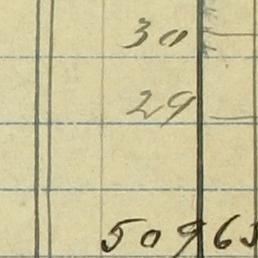 30
29
50963